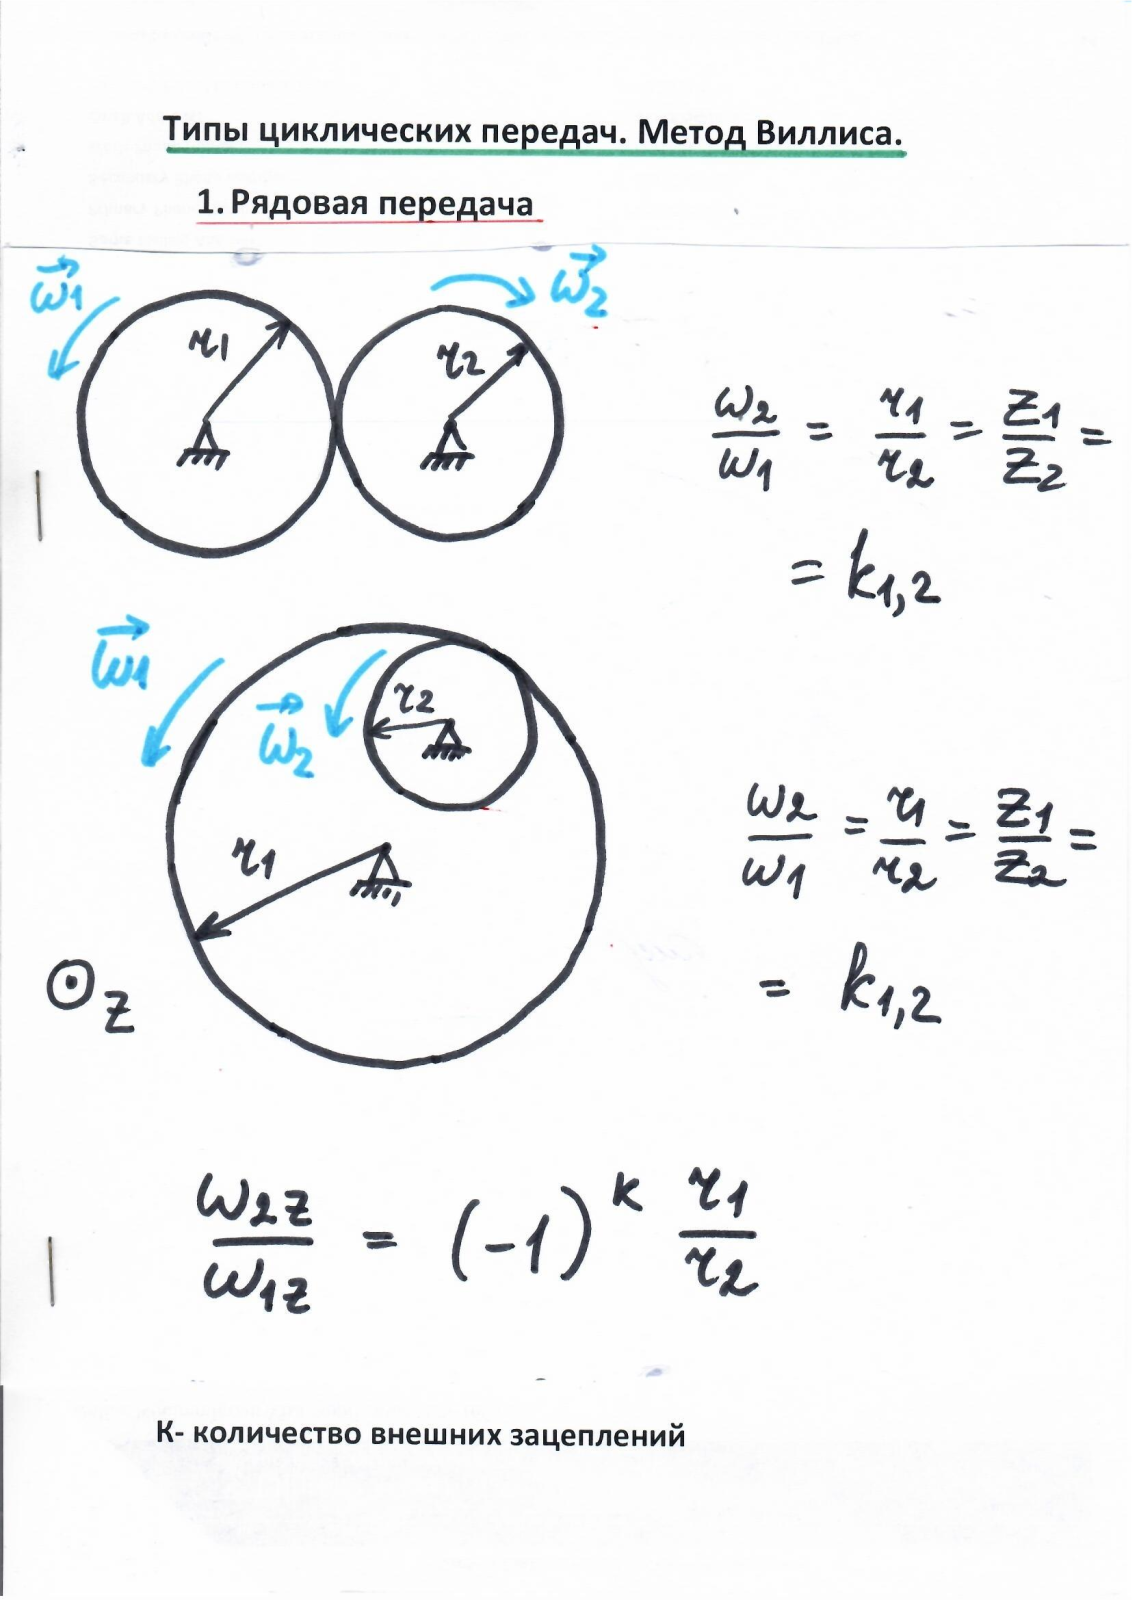 Типы циклических передач. Метод Виллиса.
1. Рядовая передача
ω1
ω2
r1
r2
ω2/ω1 = r1/r2 = Z1/Z2 =
= k1,2
ω1
ω2
r2
r1
ω2/ω1 = r1/r2 = Z1/Z2 =
= k1,2
z
ω2z/ω1z = (-1)^k r1/r2
К- количество внешних зацеплений